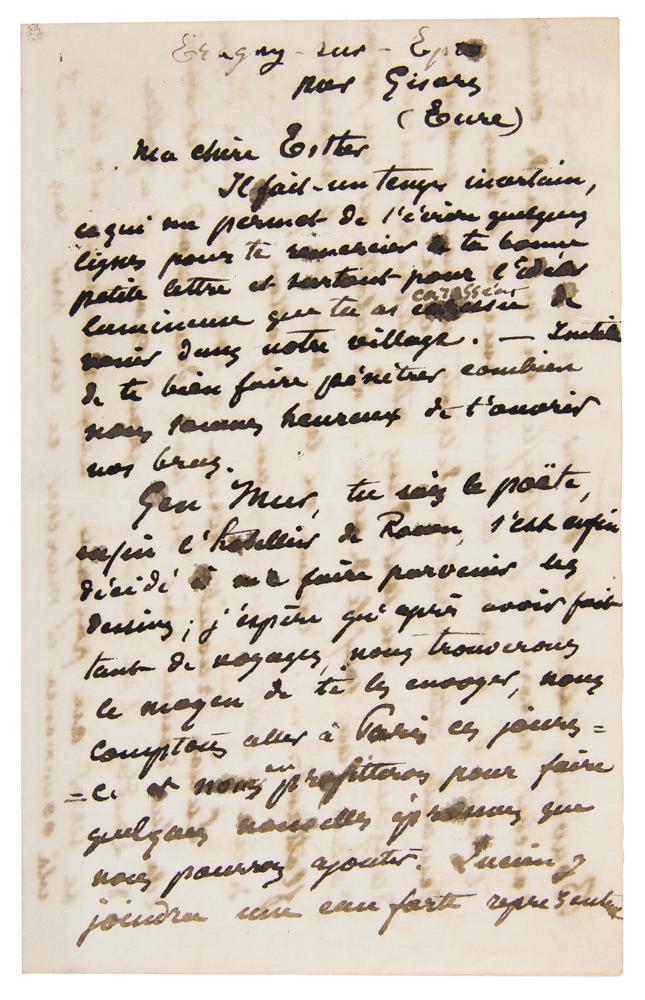 Eragny-sur-Epte
par Gisors
(Eure)
Ma chère Esther
Il fait un temps incertain,
ce qui me permet de t'écrire quelques
lignes pour te remercier de ta bonne
petite lettre et surtout pour l'idée
lumineuse que tu as caressée de
venir dans notre village. — Inutile
de te bien faire pénétrer combien
nous sommes heureux de t'ouvrir
nos bras.
Gen Mur, tu sais le poëte,
enfin l'hotellier de Rouen, s'est enfin
décidé à me faire parvenir les
dessins; j'espère qu'après avoir fait
tant de voyages, nous trouverons
le moyen de te les envoyer, nous
comptons aller à Paris ces jours=
=ci et nous en profitterons pour faire
quelques nouvelles épreuves que
nous pourrons ajouter. Lucien y
joindra une eau forte représentant